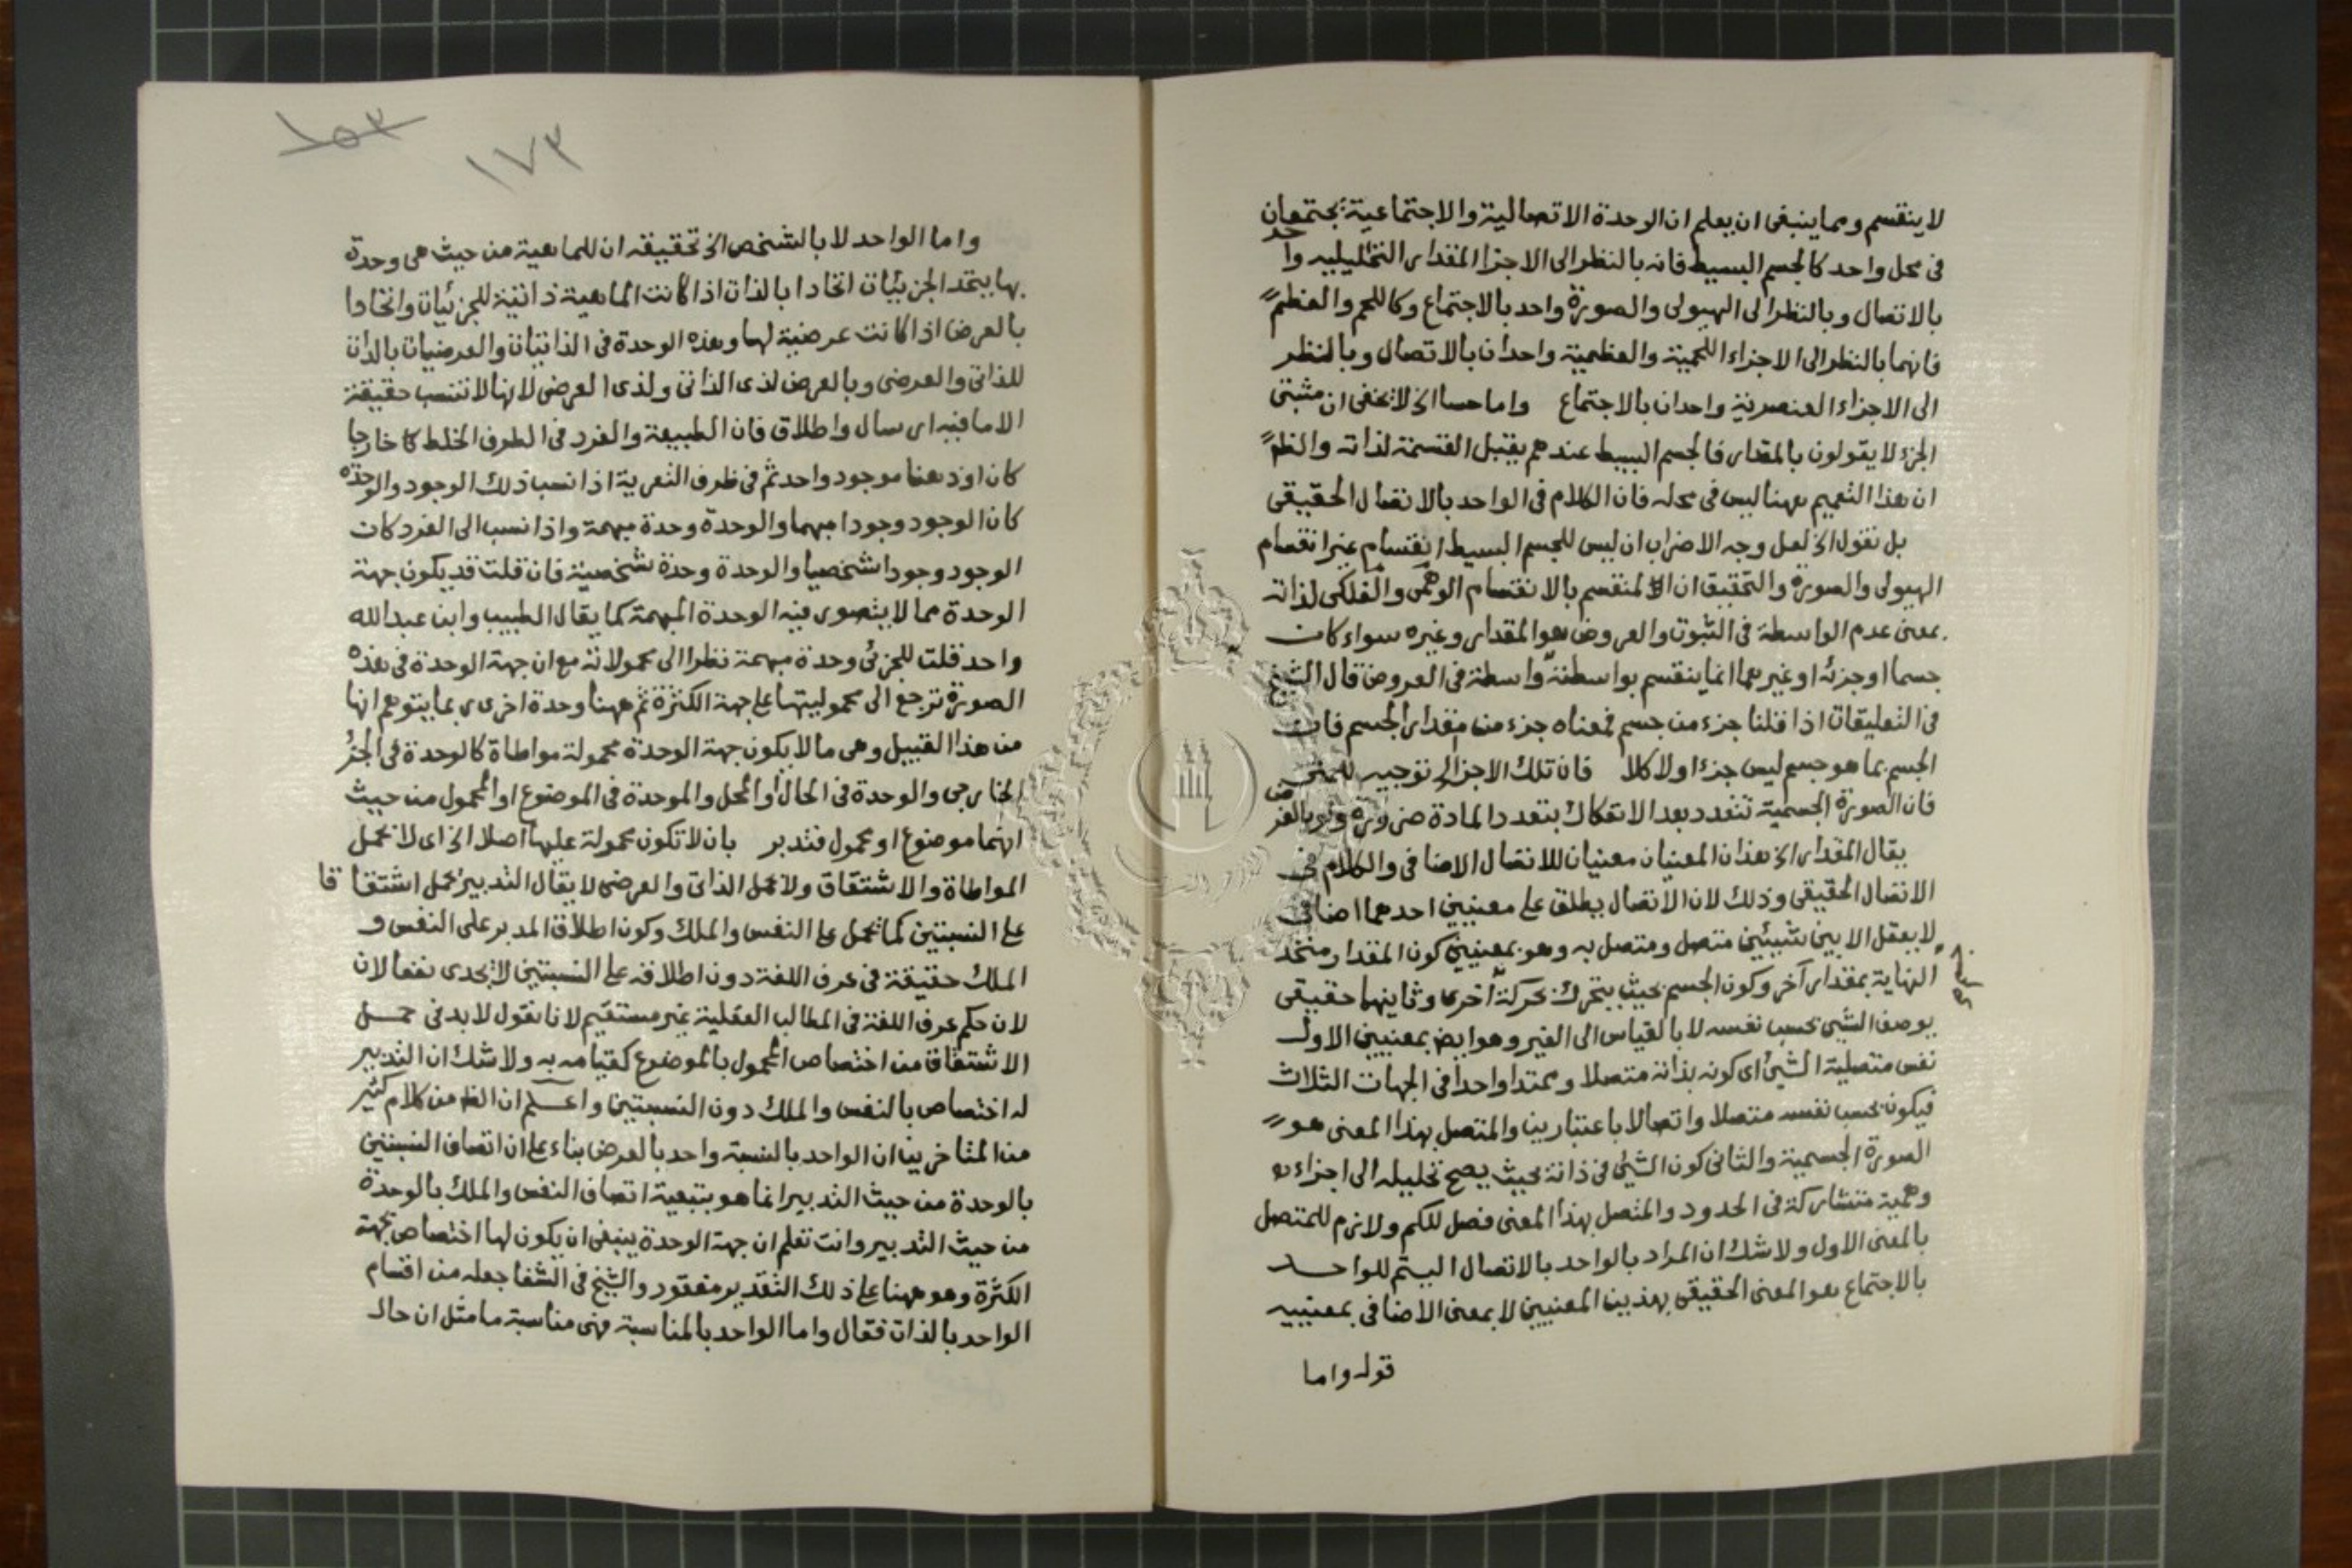 لا ينقسم ومما ينبغى ان يعلم ان الوحدة الاتصالية والاجتماعية يجتمعان
فى محل واحد كالجسم البسيط فانه بالنظر الى الاجزا المقدارى التحليليه واحد
بالاتصال وبالنظر الى الهيولى والصورة واحد بالاجتماع وكاللحم والعظم
فانهما بالنظر الى الاجزاء اللحمية والعظمية واحدان بالاتصال وبالنظر
الى الاجزاء العنصرية واحدان بالاجتماع واما حسا الخ لا يخفى ان مثبتى
الجزء لا يقولون بالمقدار فالجسم البسيط عندهم يقبل القسمة لذاته والظ
ان هذا التعميم ههنا ليس فى محله فان الكلام فى الواحد بالاتصال الحقيقى
بل نقول الخ لعل وجه الاضراب ان ليس للجسم البسيط انقسام غير انقسام
الهيولى والصورة والتحقيق ان المنقسم بالانقسام الوهمى والفلكى لذاته
بمعنى عدم الواسطة فى الثبوت والعروض هو المقدار وغيره سواء كان
جسما او جزئه او غيرهما انما ينقسم بواسطته واسطة فى العروض قال الشيخ
فى التعليقات اذا قلنا جزء من جسم فمعناه جزء من مقدار الجسم فان
الجسم بما هو جسم ليس جزءا ولا كلا فان تلك الاجزا الخ توجيه للمنفى
فان الصورة الجسمية تتعدد بعد الانفكاك بتعدد المادة ضرورة ولو بالفرض
يقال المقدار الخ هذان المعنيان معنيان للاتصال الاضافى والكلام فى
الاتصال الحقيقى وذلك لان الاتصال يطلق على معنيين احدهما اضافى
لا يعقل الا بين شيئين متصل ومتصل به وهو بمعنيين كون المقدار متحد
النهاية بمقدار آخر وكون الجسم بحيث يتحرك بحركة آخر وثانيهما حقيقى
يوصف الشئ بحسب نفسه لا بالقياس الى الغير وهو ايض بمعنيين الاول
نفس متصلية الشئ اى كونه بذاته متصلا وممتدا واحدا فى الجهات الثلاث
فيكون بحسب نفسه متصلا واتصالا باعتبارين والمتصل بهذا المعنى هو
الصورة الجسمية والثانى كون الشئ فى ذاته بحيث يصح تحليله الى اجزاء
وهمية متشاركة فى الحدود والمتصل بهذا المعنى فصل للكم ولازم للمتصل
بالمعنى الاول ولا شك ان المراد بالواحد بالاتصال للواحد
بالاجتماع هو المعنى الحقيقى بهذين المعنيين لا بمعنى الاضافى بمعنييه
قوله واما
١٥٣
١٧٣
واما الواحد لا بالشخص الخ تحقيقه ان للماهية من حيث هى وحدة
بها يتحد الجزئيات اتحادا بالذات اذا كانت الماهية ذاتية للجزئيات واتحادا
بالعرض اذا كانت عرضية لها وهذه الوحدة فى الذاتيات والعرضيات بالذات
للذاتى والعرضى وبالعرض لذى الذاتى ولذى العرضى لانها لا تنسب حقيقة
الا ما فيه ارسال واطلاق فان الطبيعة والفرد فى الطرف الخلط كا خارجا
كان او ذهنا موجود واحد ثم فى ظرف التعرية اذا نسب ذلك الوجود والوحدة
كان الوجود وجودا مبهما والوحدة وحدة مبهمة واذا نسب الى الفرد كان
الوجود وجودا شخصيا والوحدة وحدة شخصية فان قلت قد يكون جهة
الوحدة مما لا يتصور فيه الوحدة المبهمة كما يقال الطبيب وابن عبد الله
واحد قلت للجزئى وحدة مبهمة نظرا الى محمولاته مع ان جهة الوحدة فى هذه
الصورة ترجع الى محموليتها على جهة الكثرة ثم ههنا وحدة اخرى ربما يتوهم انها
من هذا القبيل وهى ما لا يكون جهة الوحدة محمولة مواطاة كالوحدة فى الجزء
الخارجى والوحدة فى الحال او المحل والموحدة فى الموضوع او المحمول من حيث
انهما موضوع او محمول فتدبر بان لا تكون محمولة عليها اصلا الخ اى لا تحمل
المواطاة والاشتقاق ولا حمل الذاتى والعرضى لا يقال التدبير يحمل اشتقاقا
على النسبتين كما يحمل على النفس والملك وكون اطلاق المدبر على النفس و
الملك حقيقة فى عرف اللغة دون اطلاقه على النسبتين لا يجدى نفعا لان
لان حكم عرف اللغة فى المطالب العقلية غير مستقيم لانا نقول لا بد فى حمل
الاشتقاق من اختصاص المحمول بالموضوع كقيامه به ولا شك ان التدبير
له اختصاص بالنفس والملك دون النسبتين واعلم ان الظ من كلام كثير
من المتاخرين ان الواحد بالنسبة واحد بالعرض بناء على ان اتصاف النسبتين
بالوحدة من حيث التدبير انما هو بتبعية اتصاف النفس والملك بالوحدة
من حيث التدبير وانت تعلم ان جهة الوحدة ينبغى ان يكون لها اختصاص بجهة
الكثرة وهو ههنا على ذلك التقدير مفقود والشيخ فى الشفا جعله من اقسام
الواحد بالذات فقال واما الواحد بالمناسبة فهى مناسبة ما مثل ان حال